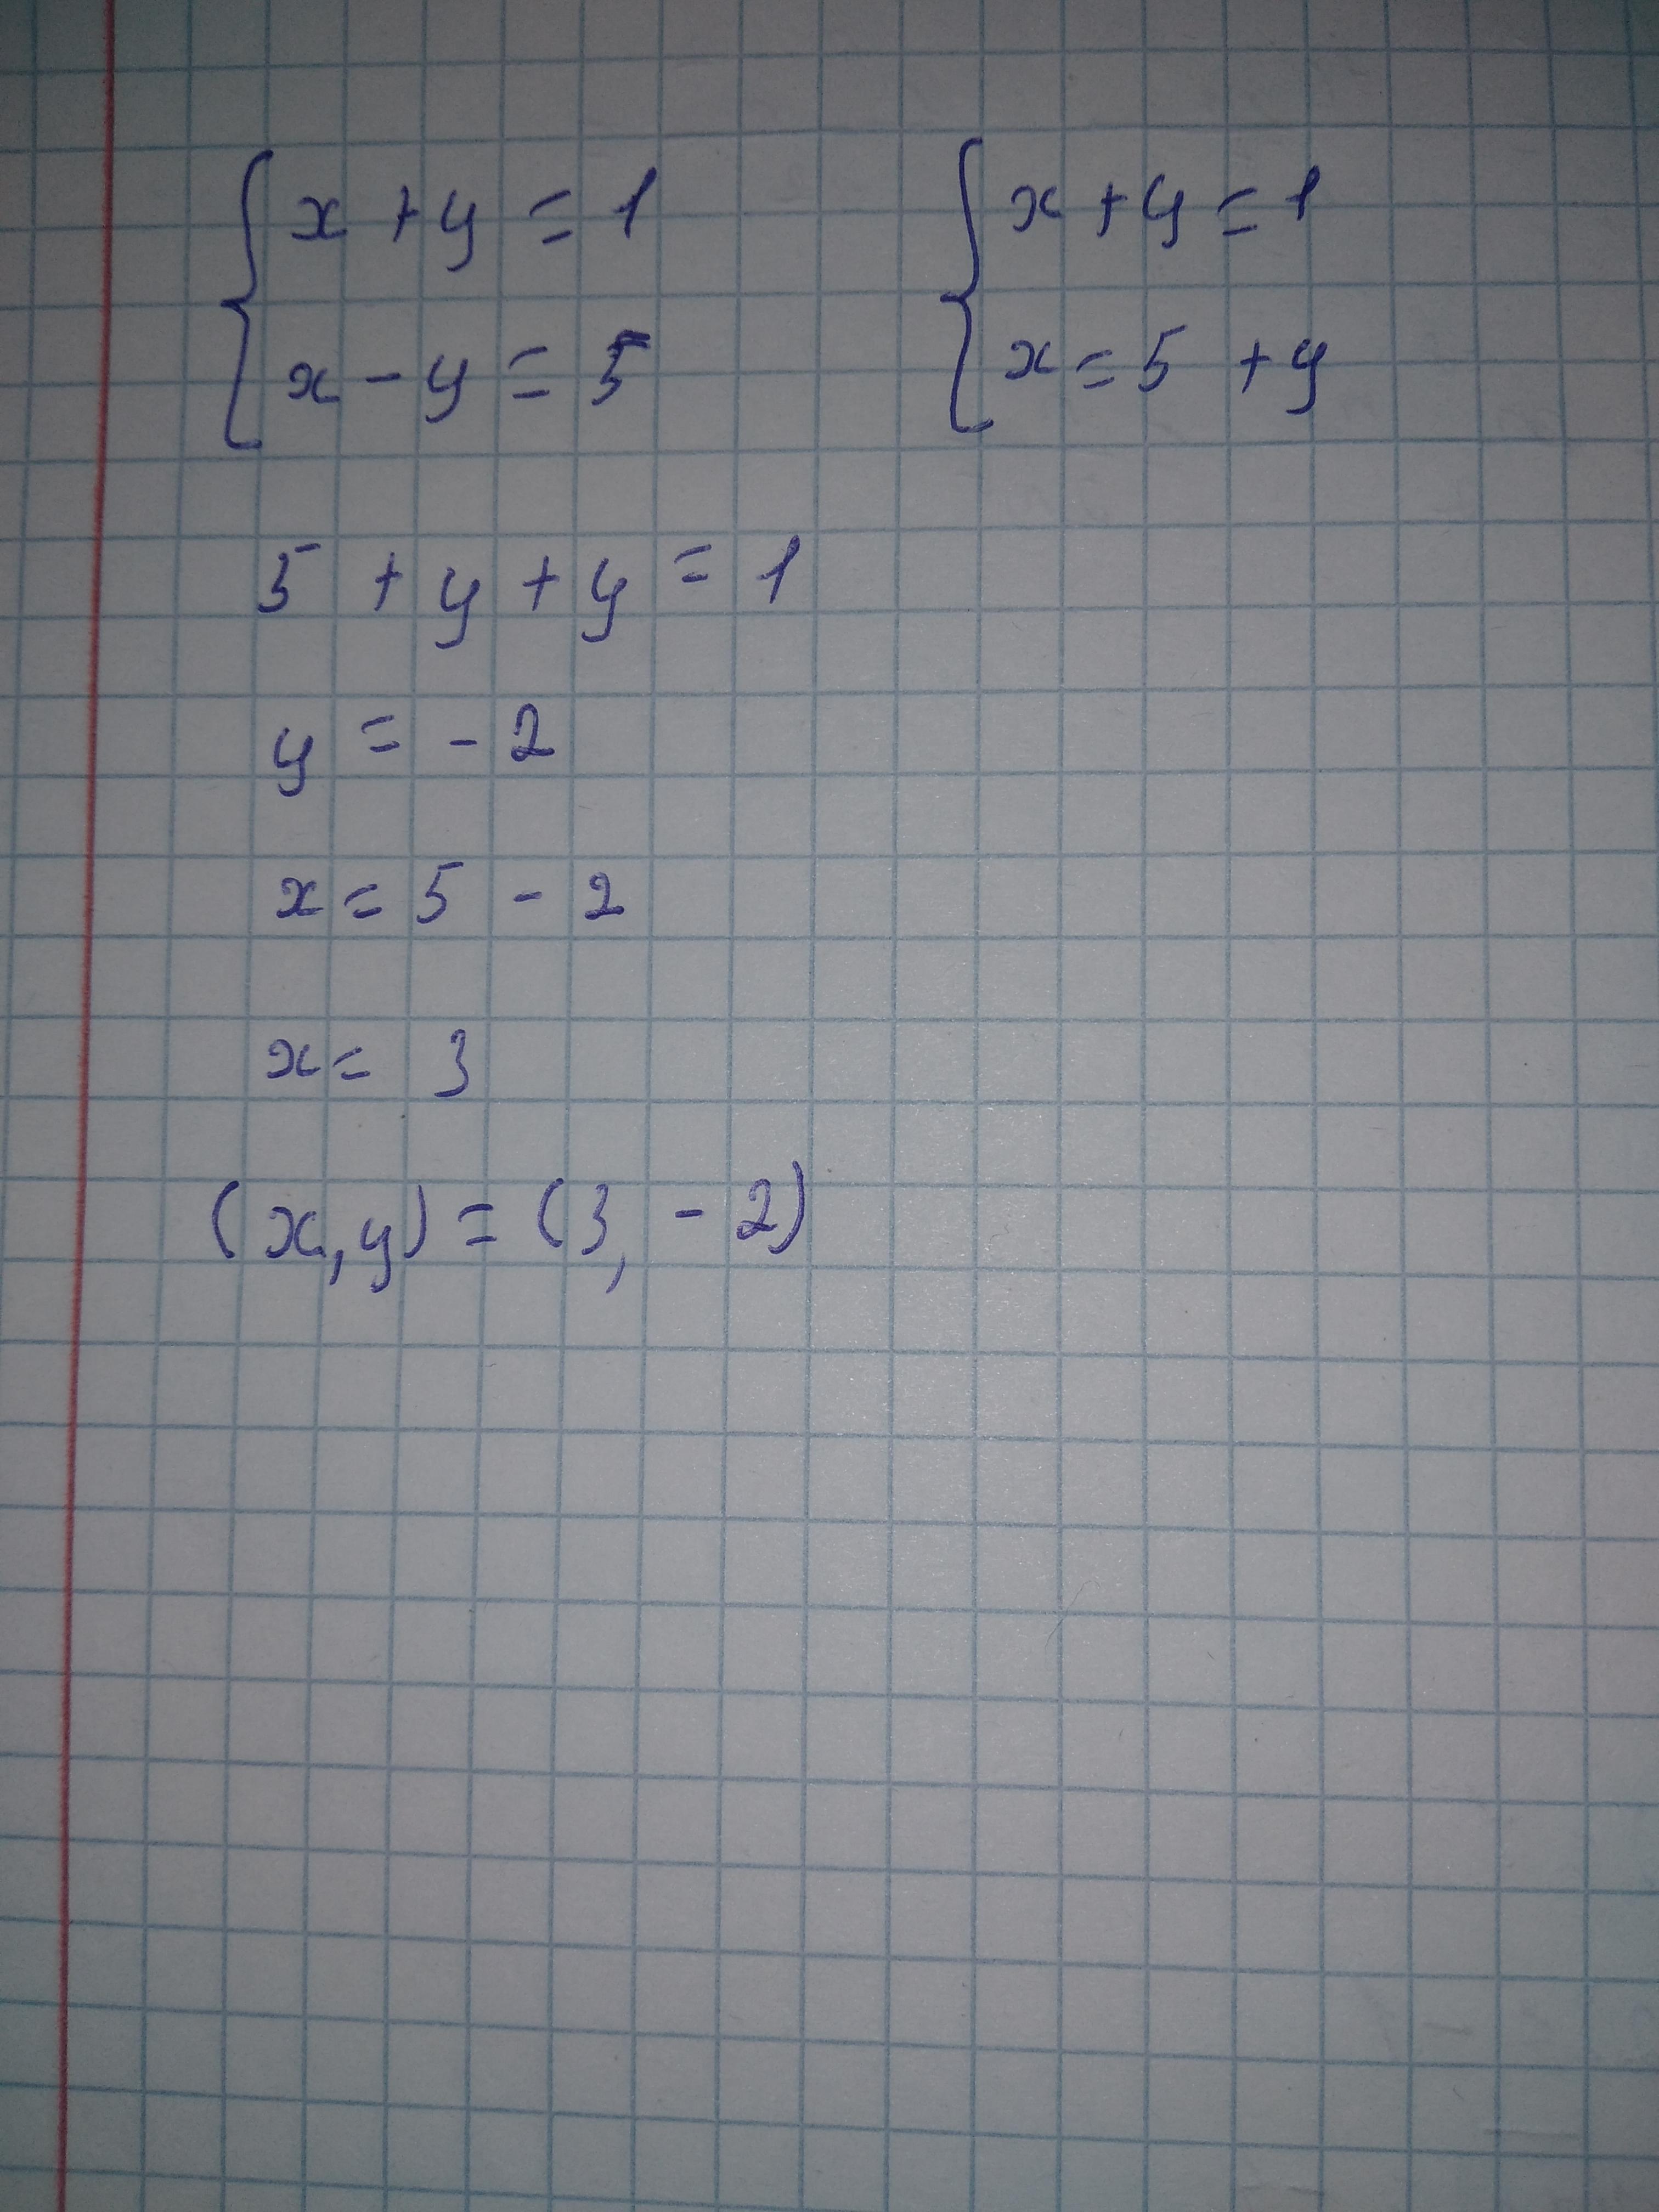 x + y = 1
x - y = 5
x + y = 1
x = 5 + y
5 + y + y = 1
y = - 2
x = 5 - 2
x = 3
(x, y) = (3, - 2)